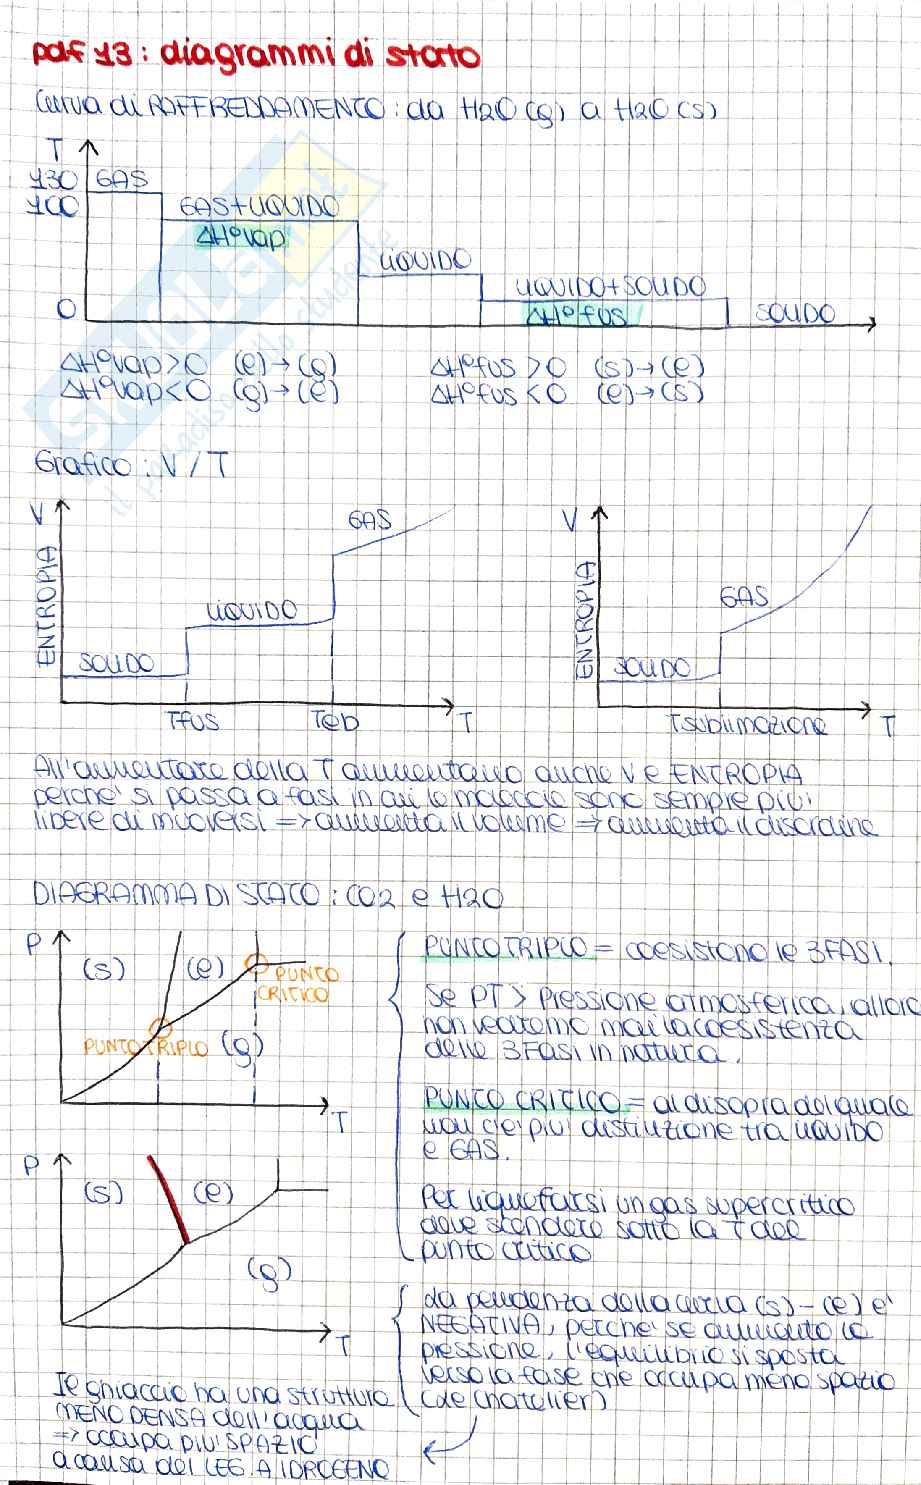 pdf 13: diagrammi di stato
Curva di RAFFREDDAMENTO: da H2O (g) a H2O (s)
T
130 GAS
100 GAS+LIQUIDO
ΔH°vap
LIQUIDO
LIQUIDO+SOLIDO
0 ΔH°fus SOLIDO
ΔH°vap>0 (l)→(g) ΔH°fus >0 (s)→(l)
ΔH°vap<0 (g)→(l) ΔH°fus <0 (l)→(s)
Grafico: V/T
V GAS
ENTROPIA
LIQUIDO
SOLIDO
Tfus Teb T
V
ENTROPIA
GAS
SOLIDO
Tsublimazione T
All'aumentare della T aumentano anche V e ENTROPIA
perché si passa a fasi in cui le molecole sono sempre più
libere di muoversi => aumenta il volume => aumenta il disordine
DIAGRAMMA DI STATO: CO2 e H2O
P
(s) (l)
PUNTO
CRITICO
PUNTO TRIPLO (g)
T
PUNTO TRIPLO = coesistono le 3 FASI.
Se PT > pressione atmosferica, allora
non vedremo mai la coesistenza
delle 3 FASI in natura.
PUNTO CRITICO = al disopra del quale
non c'è più distinzione tra LIQUIDO
e GAS.
Per liquefarsi un gas supercritico
deve scendere sotto la T del
punto critico
P
(s) (l)
(g)
T
La pendenza della curva (s)-(l) è
NEGATIVA, perché se aumento la
pressione, l'equilibrio si sposta
verso la fase che occupa meno spazio
(Le Chatelier)
Il ghiaccio ha una struttura
MENO DENSA dell'acqua
=> occupa più SPAZIO
a causa del LEG. A IDROGENO
SKUOLA.net
il paradiso dello studente